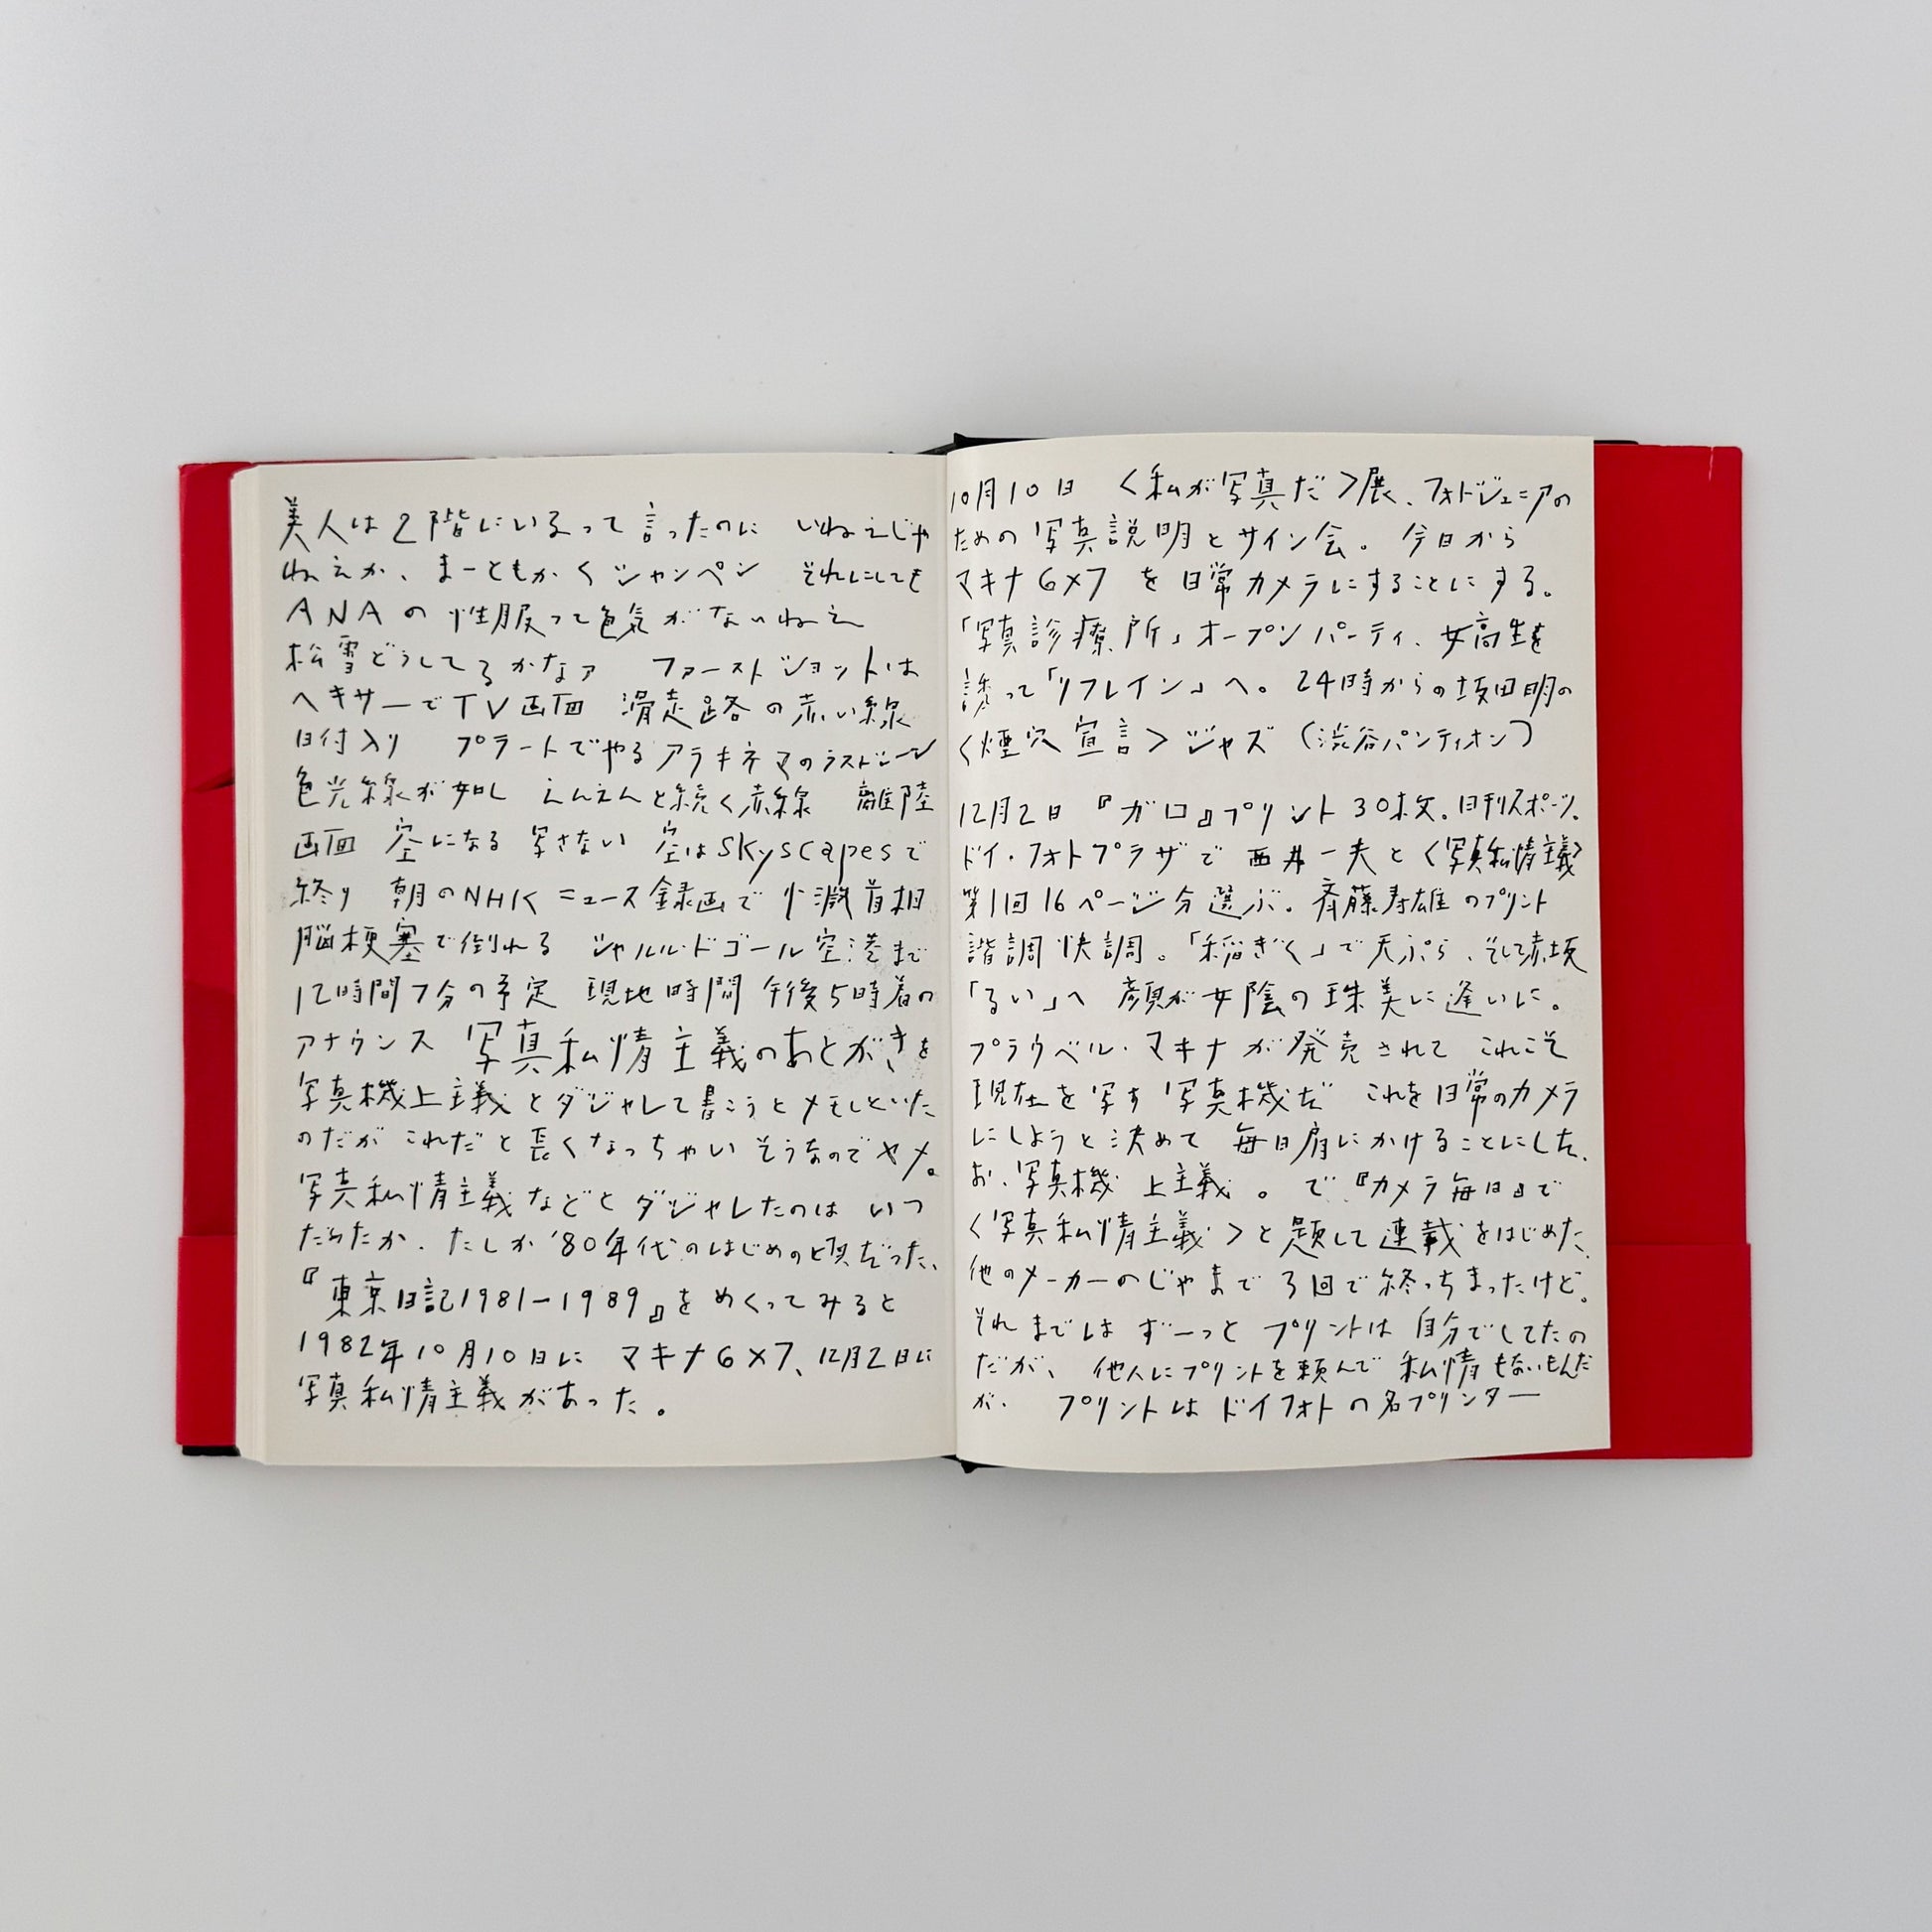 美人は2階にいるって言ったのに いねえじゃ
ねえか、まーともかくシャンペン それにしても
ANAの性服って色気がないねえ
松雪どうしてるかなァ ファーストショットは
ヘキサーでTV画面 滑走路の赤い線
日付入り プラートでやるアラキネマのラストシーン
色光線が如し えんえんと続く赤線 離陸
画面 空になる 写さない 空はskyscapesで
終り 朝のNHKニュース録画で小渕首相
脳梗塞で倒れる シャルル・ドゴール空港まで
12時間7分の予定 現地時間 午後5時着の
アナウンス 写真私情主義のあとがきを
写真機上主義とダジャレて書こうとメモしといた
のだが これだと長くなっちゃいそうなのでヤメ。
写真私情主義などとダジャレたのは いつ
だったか、たしか'80年代のはじめの頃だった、
『東京日記1981-1989』をめくってみると
1982年10月10日に マキナ6×7、12月2日に
写真私情主義があった。
10月10日 〈私が写真だ〉展、フォトジェニアの
ための写真説明とサイン会。今日から
マキナ6×7 を日常カメラにすることにする。
「写真診療所」オープンパーティ、女高生を
誘って「リフレイン」へ。24時からの坂田明の
〈煙穴宣言〉ジャズ(渋谷パンティオン)
12月2日『ガロ』プリント30枚。日刊スポーツ。
ドイ・フォトプラザで 西井一夫と〈写真私情主義〉
第1回16ページ分選ぶ。斉藤寿雄のプリント
諧調快調。「稲ぎく」で天ぷら、そして赤坂
「るい」へ 顔が女陰の珠美に逢いに。
プラウベル・マキナが発売されて これこそ
現在を写す写真機だ これを日常のカメラ
にしようと決めて 毎日肩にかけることにした、
お、写真機上主義。で『カメラ毎日』で
〈写真私情主義〉と題して連載をはじめた、
他のメーカーのじゃまで3回で終っちまったけど。
それまではずーっと プリントは自分でしてたの
だが、他人にプリントを頼んで私情もないもんだ
が、プリントはドイフォトの名プリンター